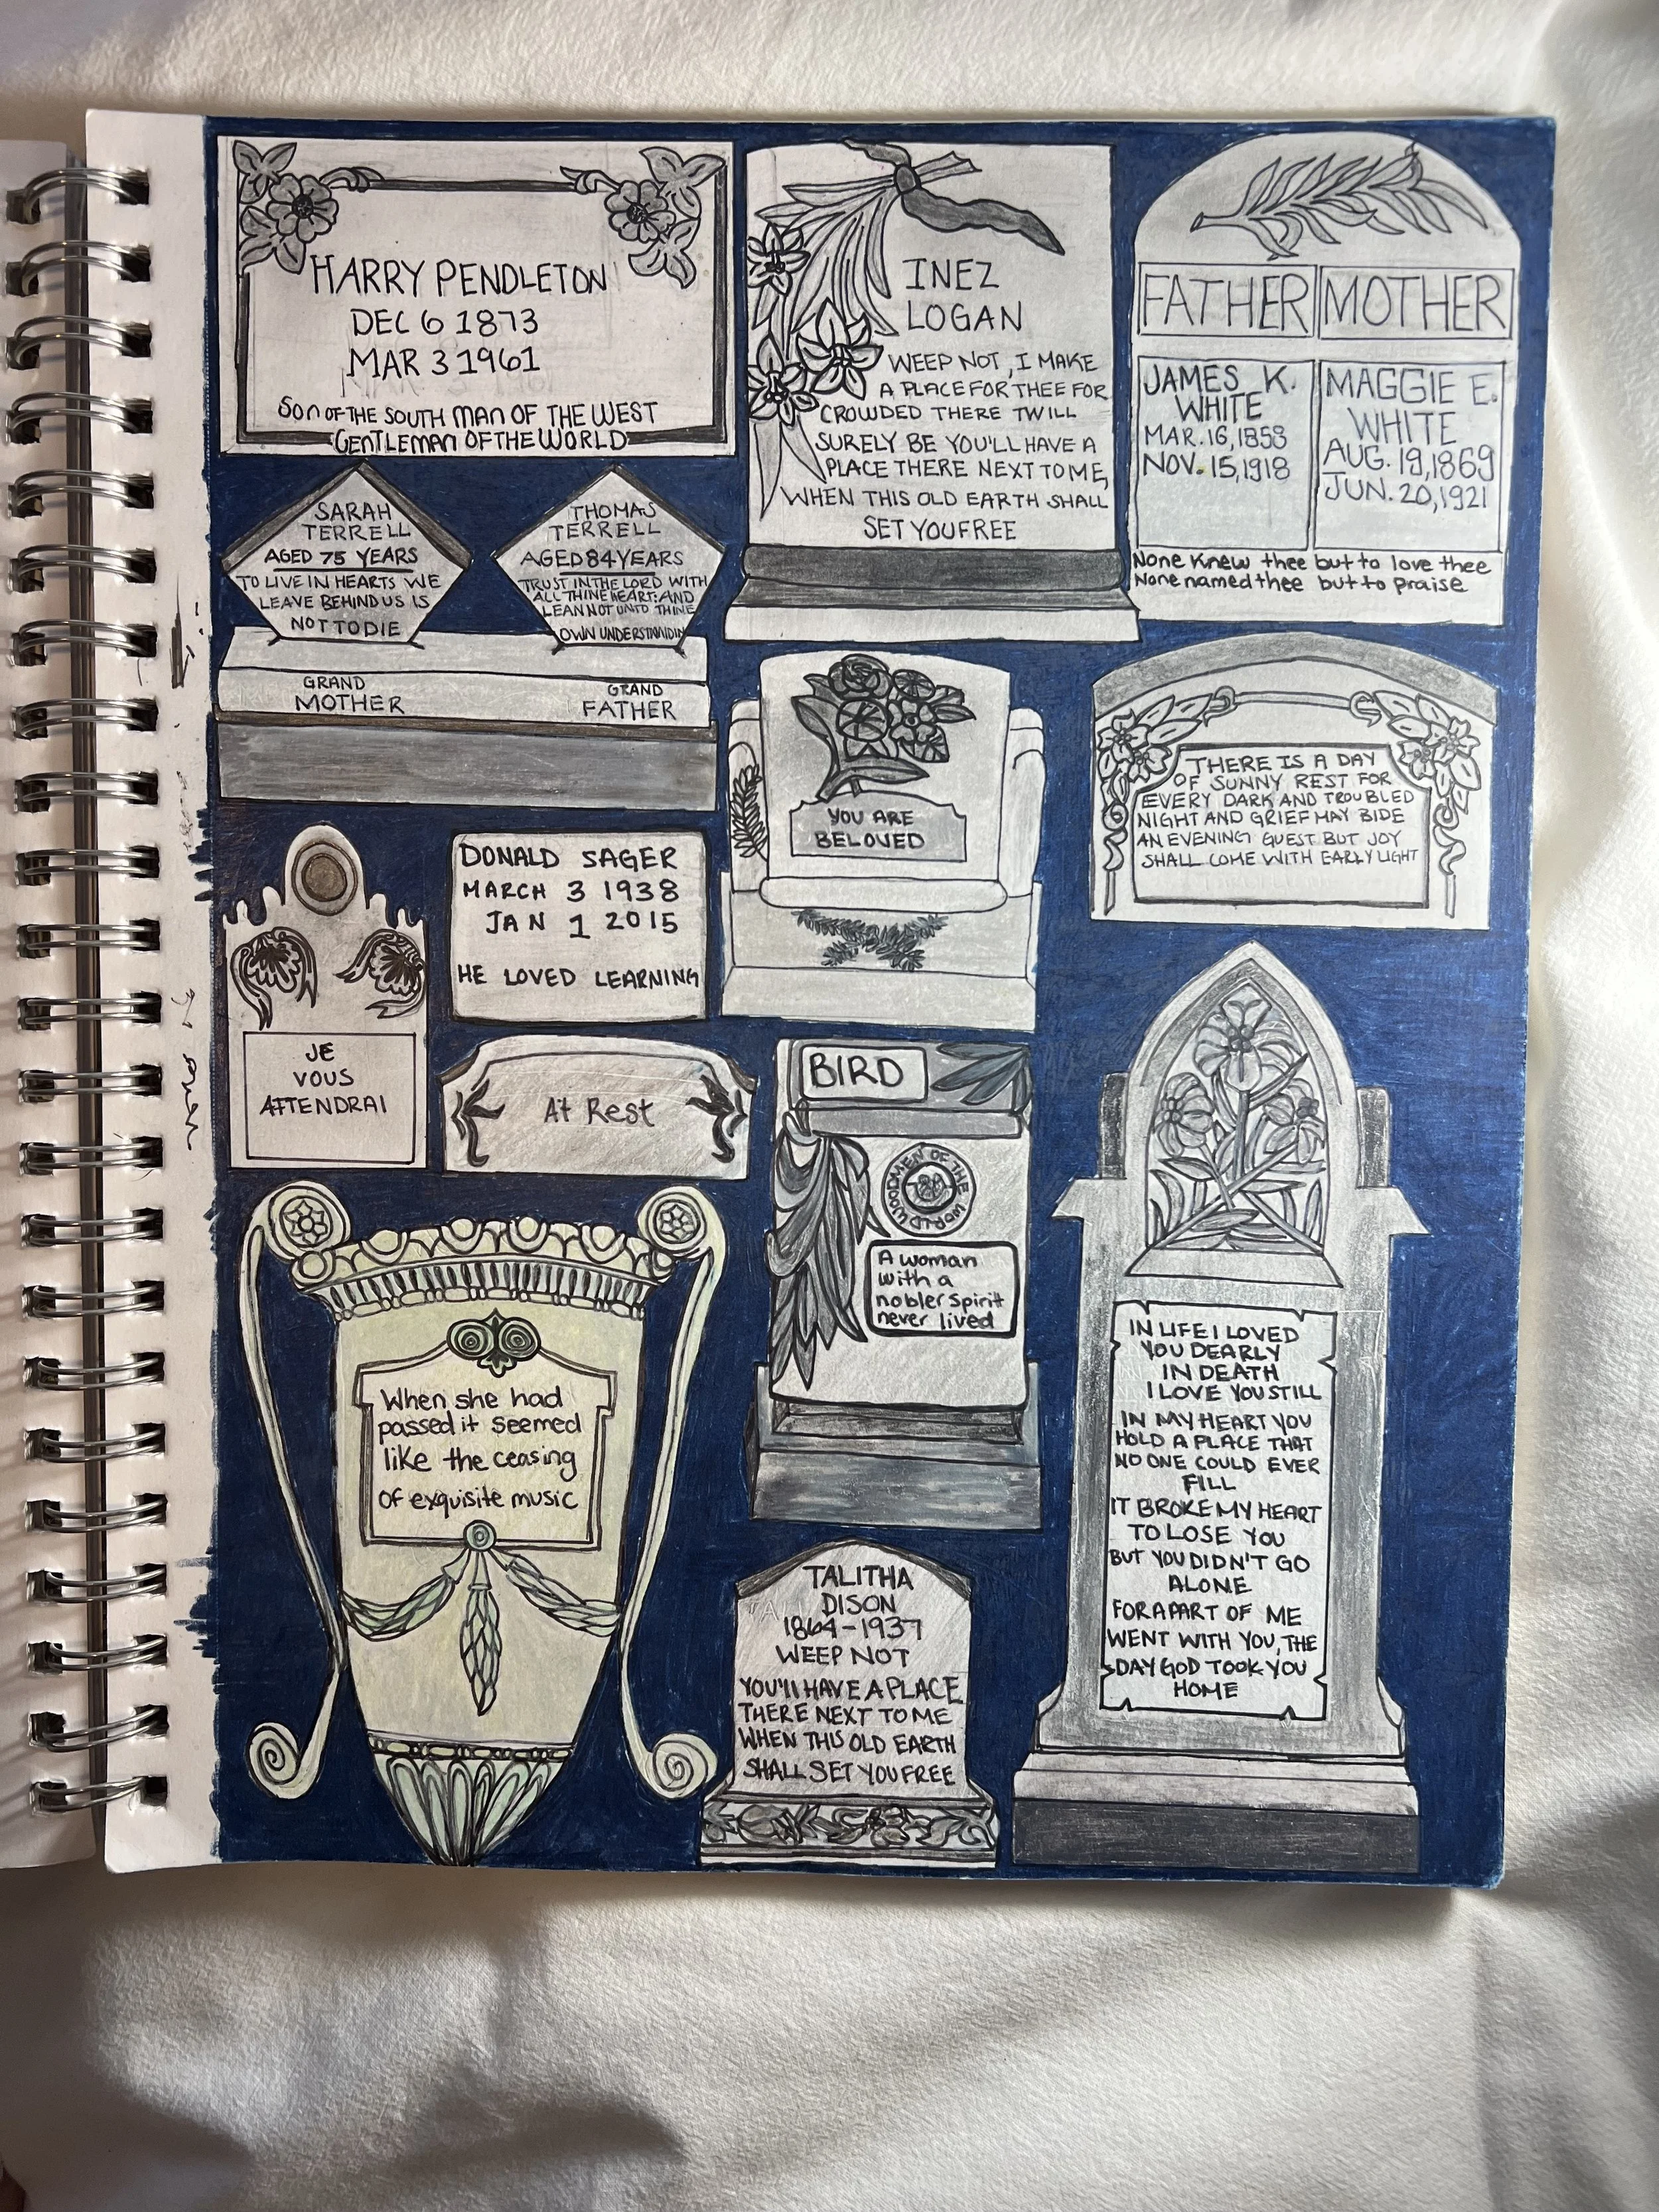 HARRY PENDLETON
DEC 6 1873
MAR 3 1961
SON OF THE SOUTH MAN OF THE WEST
GENTLEMAN OF THE WORLD
INEZ
LOGAN
WEEP NOT, I MAKE
A PLACE FOR THEE FOR
CROWDED THERE TWILL
SURELY BE YOU'LL HAVE A
PLACE THERE NEXT TO ME,
WHEN THIS OLD EARTH SHALL
SET YOU FREE
FATHER MOTHER
JAMES K.
WHITE
MAR. 16, 1858
NOV. 15, 1918
MAGGIE E.
WHITE
AUG. 19, 1869
JUN. 20, 1921
None Knew thee but to love thee
None named thee but to praise
SARAH
TERRELL
AGED 75 YEARS
TO LIVE IN HEARTS WE
LEAVE BEHIND US IS
NOT TO DIE
GRAND
MOTHER
THOMAS
TERRELL
AGED 84 YEARS
TRUST IN THE LORD WITH
ALL THINE HEART; AND
LEAN NOT UNTO THINE
OWN UNDERSTANDIN
GRAND
FATHER
YOU ARE
BELOVED
THERE IS A DAY
OF SUNNY REST FOR
EVERY DARK AND TROUBLED
NIGHT AND GRIEF MAY BIDE
AN EVENING GUEST BUT JOY
SHALL COME WITH EARLY LIGHT
DONALD SAGER
MARCH 3 1938
JAN 1 2015
HE LOVED LEARNING
JE
VOUS
ATTENDRAI
At Rest
BIRD
WOODMEN OF THE WORLD
A woman
with a
nobler spirit
never lived
IN LIFE I LOVED
YOU DEARLY
IN DEATH
I LOVE YOU STILL
IN MY HEART YOU
HOLD A PLACE THAT
NO ONE COULD EVER
FILL
IT BROKE MY HEART
TO LOSE YOU
BUT YOU DIDN'T GO
ALONE
FOR A PART OF ME
WENT WITH YOU, THE
DAY GOD TOOK YOU
HOME
When she had
passed it seemed
like the ceasing
of exquisite music
TALITHA
DISON
1864-1937
WEEP NOT
YOU'll HAVE A PLACE
THERE NEXT TO ME
WHEN THIS OLD EARTH
SHALL SET YOU FREE